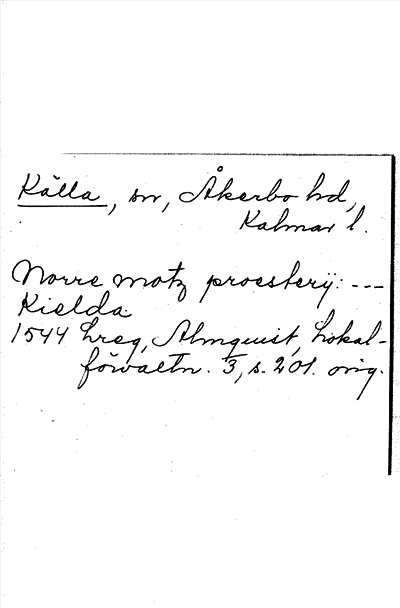 Källa, sn, Åkerbo hd,
Kalmar l.
Norre motz proesterij: ---
Kielda
1544 hreg, Almquist, Lokal-
förvaltn. 3, s. 201. orig.